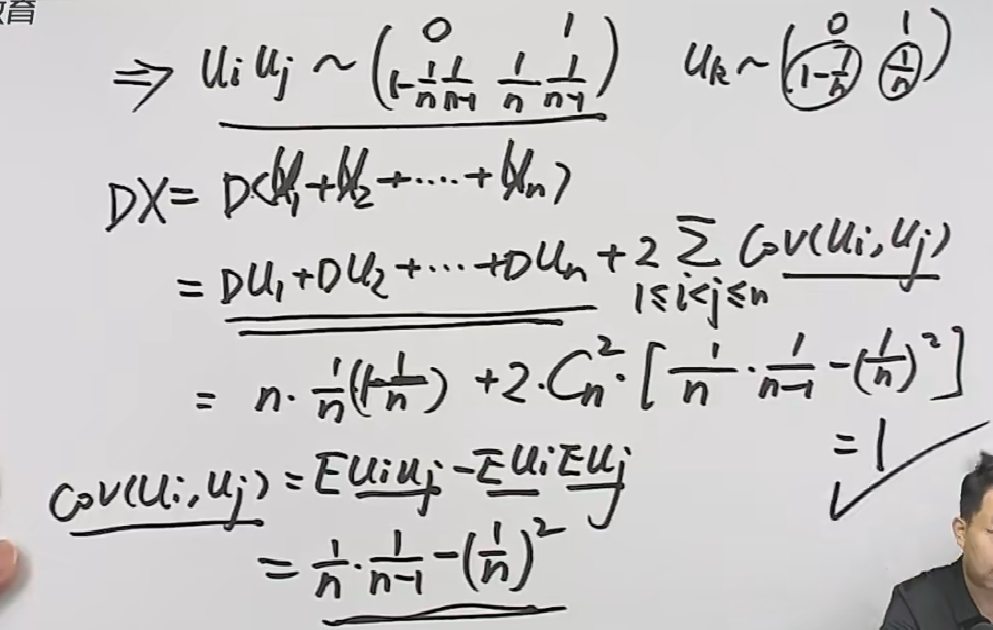 教育
⇒ UiUj ~ (0 1; 1-1/n·1/(n-1) 1/n·1/(n-1)) Uk ~ (0 1; 1-1/n 1/n)
DX = D(U₁+U₂+····+Uₙ)
= DU₁+DU₂+···+DUₙ + 2 Σ Cov(Ui, Uj)
1≤i<j≤n
= n·1/n(1-1/n) + 2·Cₙ²·[1/n·1/(n-1) - (1/n)²]
= 1 ✓
Cov(Ui, Uj) = EUiUj - EUiEUj
= 1/n·1/(n-1) - (1/n)²